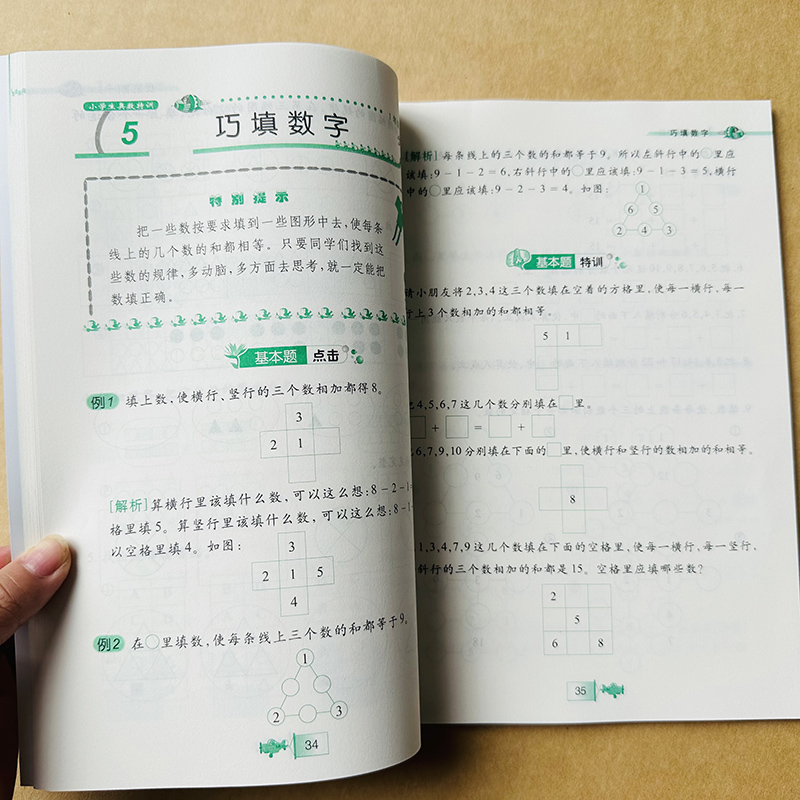 小学生奥数特训
5
巧填数字
特别提示
把一些数按要求填到一些图形中去,使每条
线上的几个数的和都相等。只要同学们找到这
些数的规律,多动脑,多方面去思考,就一定能把
数填正确。
基本题 点击
例1 填上数,使横行、竖行的三个数相加都得8。
3
2 1
[解析]算横行里该填什么数,可以这么想:8-2-1=
格里填5。算竖行里该填什么数,可以这么想:8-1-
以空格里填4。如图:
3
2 1 5
4
例2 在○里填数,使每条线上三个数的和都等于9。
1
2 3
34
巧填数字
[解析]每条线上的三个数的和都等于9。所以左斜行中的○里应
该填:9-1-2=6,右斜行中的○里应该填:9-1-3=5,横行
中的○里应该填:9-2-3=4。如图:
1
6 5
2 4 3
基本题 特训
请小朋友将2,3,4这三个数填在空着的方格里,使每一横行,每一
行上3个数相加的和都相等。
5 1
4,5,6,7这几个数分别填在□里。
□+□=□+□
6,7,9,10分别填在下面的□里,使横行和竖行的数相加的和相等。
8
1,3,4,7,9这几个数填在下面的空格里,使每一横行,每一竖行,
斜行的三个数相加的和都是15。空格里应填哪些数?
2
5
6 8
35